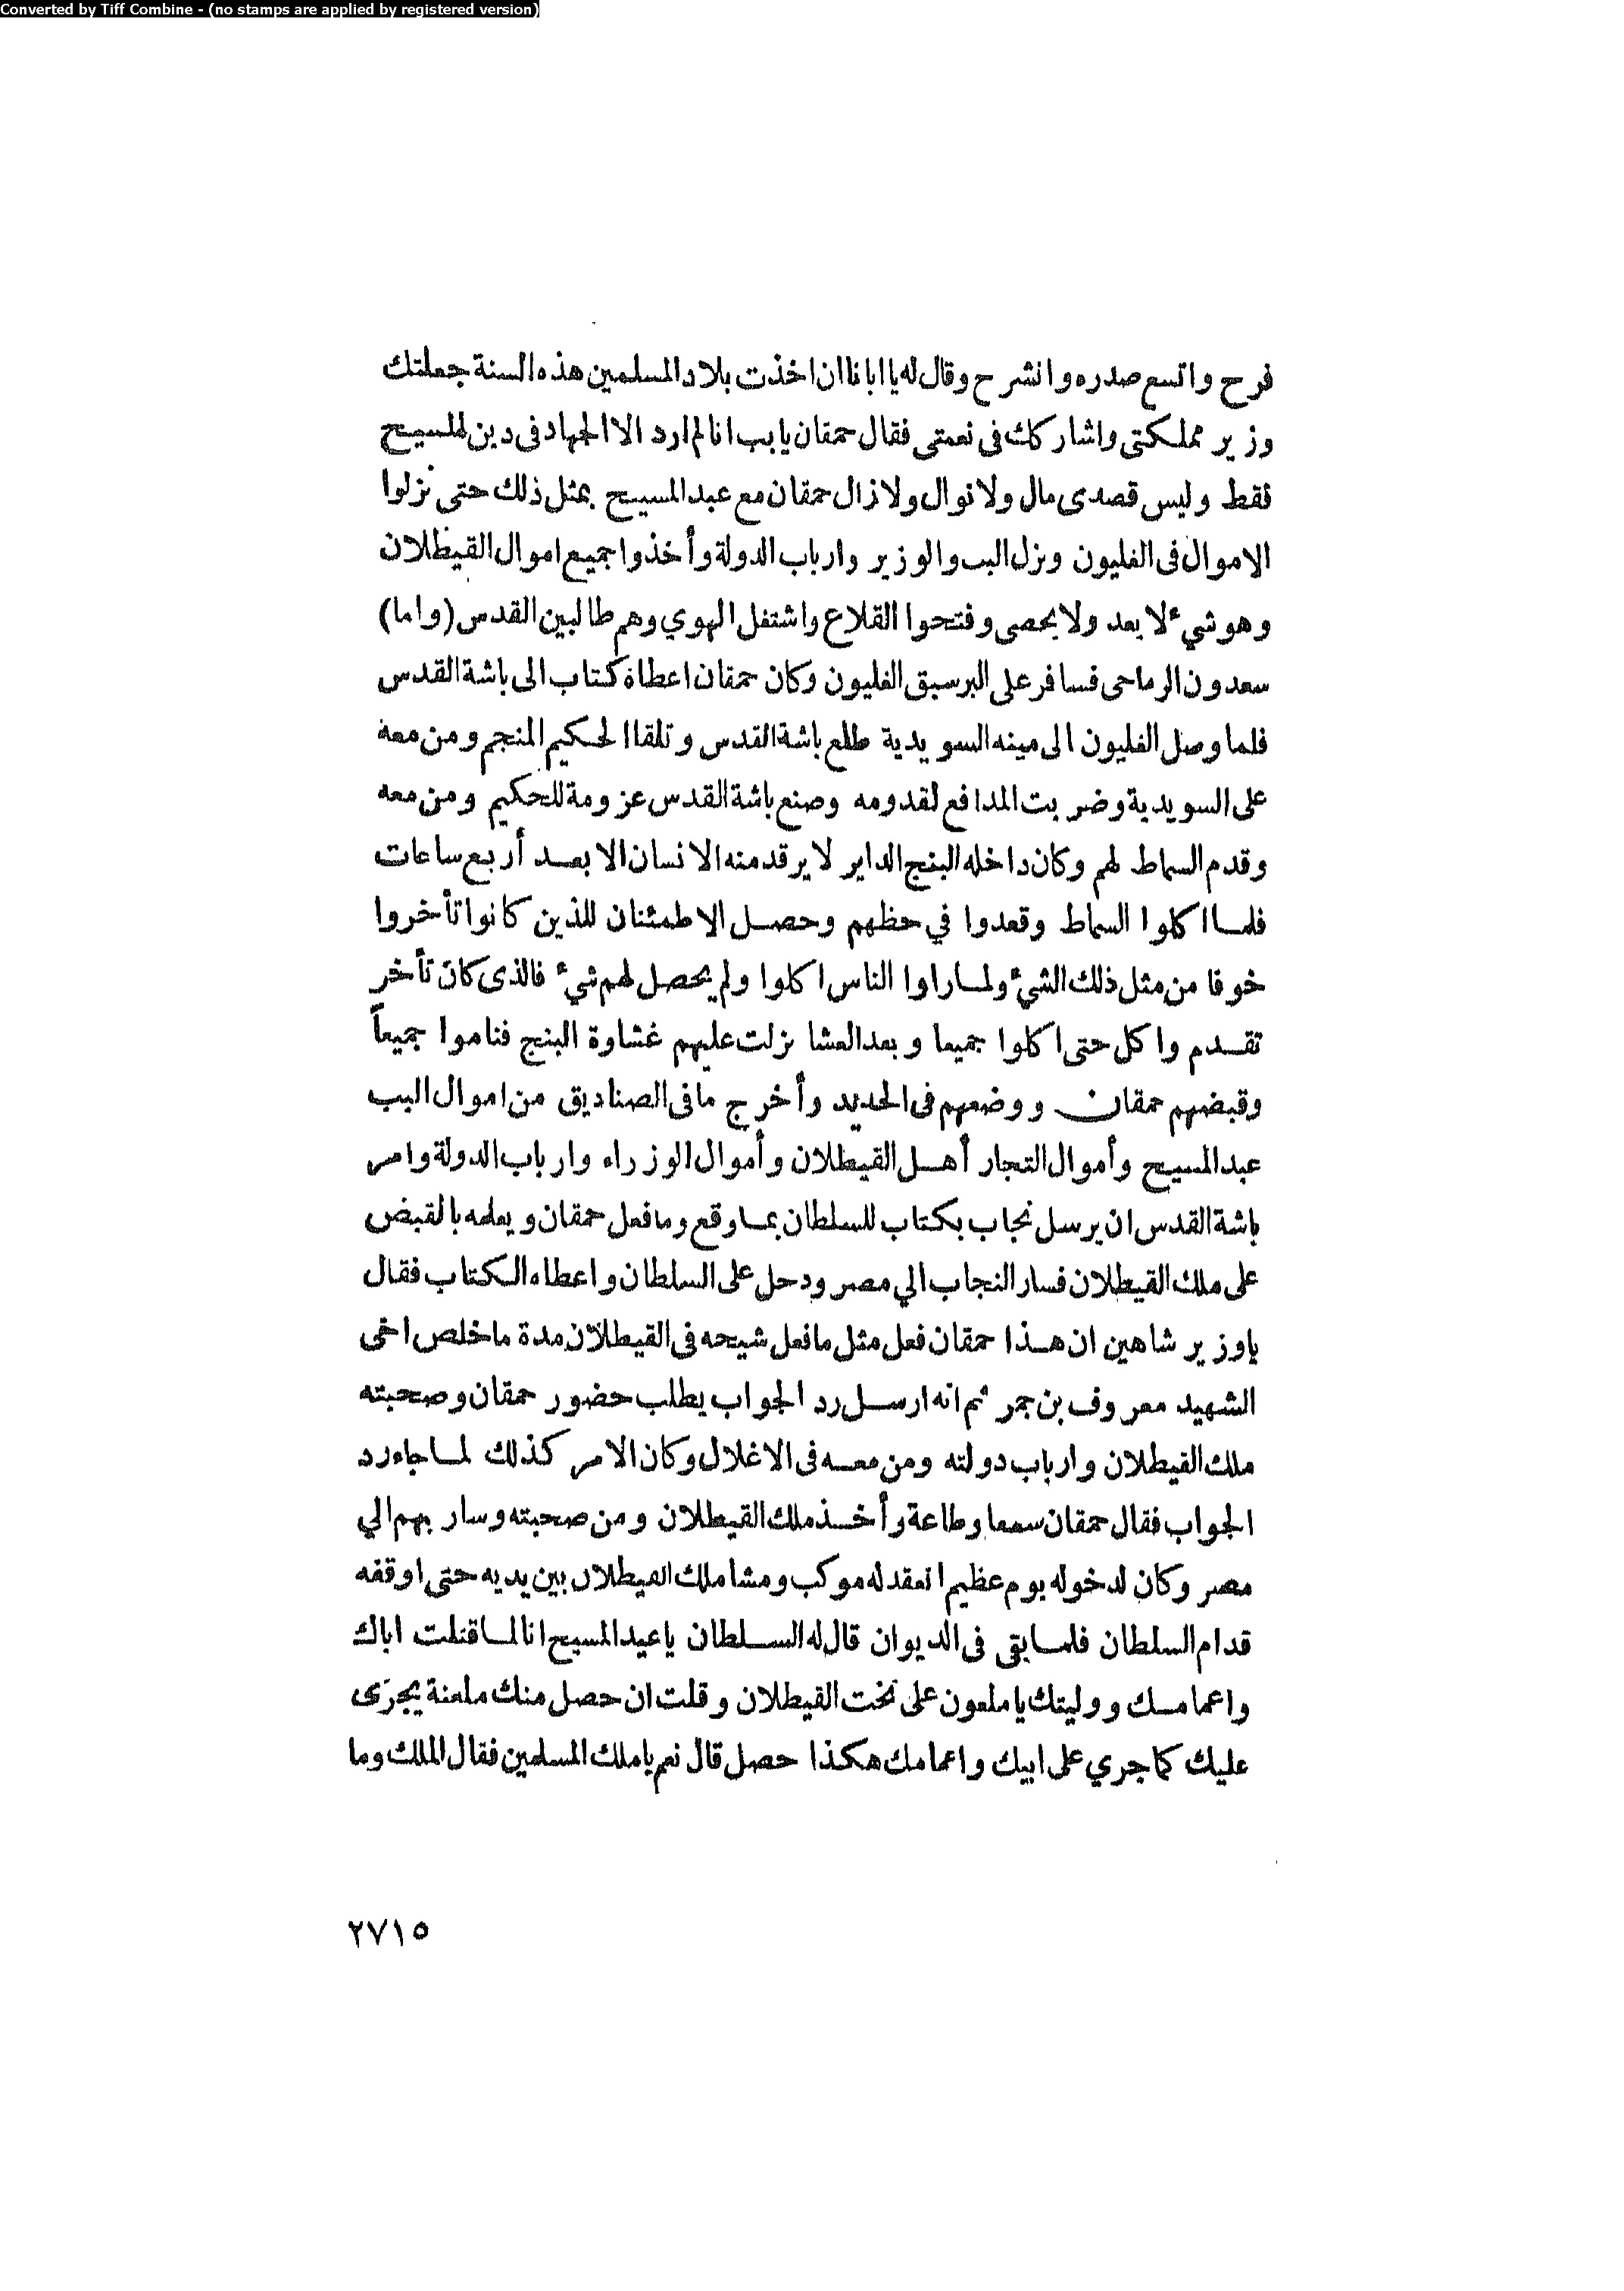 Converted by Tiff Combine - (no stamps are applied by registered version)
فرح واتسع صدره وانشرح وقال له يا ابانا ان اخذت بلاد المسلمين هذه السنة جعلتك
وزير مملكتى واشاركك فى نعمتى فقال حمقان يا بب انا لم ارد الا الجهاد فى دين المسيح
فقط وليس قصدى مال ولا نوال ولا زال حمقان مع عبد المسيح بمثل ذلك حتى نزلوا
الاموال فى الغليون ونزل البب والوزير وارباب الدولة وأخذوا جميع اموال القيطلان
وهو شيء لا يعد ولا يحصى وفتحوا القلاع واشتغل الهوي وهم طالبين القدس (واما)
سعدون الرماحى فسافر على البر سبق الغليون وكان حمقان اعطاه كتاب الى باشة القدس
فلما وصل الغليون الى مينه السويدية طلع باشة القدس وتلقا الحكيم المنجم ومن معه
على السويدية وضربت المدافع لقدومه وصنع باشة القدس عزومة للحكيم ومن معه
وقدم السماط لهم وكان داخله البنج الداير لا يرقد منه الانسان الا بعد أربع ساعات
فلما اكلوا السماط وقعدوا في حظهم وحصل الاطمئنان للذين كانوا تأخروا
خوفا من مثل ذلك الشيء ولما راوا الناس اكلوا ولم يحصل لهم شيء فالذى كان تأخر
تقدم واكل حتى اكلوا جميعا وبعد العشا نزلت عليهم غشاوة البنج فناموا جميعاً
وقبضهم حمقان ووضعهم فى الحديد وأخرج ما فى الصناديق من اموال البب
عبد المسيح وأموال التجار أهل القيطلان وأموال الوزراء وارباب الدولة وامر
باشة القدس ان يرسل نجاب بكتاب للسلطان بما وقع وما فعل حمقان ويعلمه بالقبض
على ملك القيطلان فسار النجاب الي مصر ودحل على السلطان واعطاه الكتاب فقال
ياوزير شاهين ان هذا حمقان فعل مثل ما فعل شيحه فى القيطلان مدة ما خلص اخى
الشهيد معروف بن جمر ثم انه ارسل رد الجواب يطلب حضور حمقان وصحبته
ملك القيطلان وارباب دولته ومن معه فى الاغلال وكان الامر كذلك لما جاء رد
الجواب فقال حمقان سمعا وطاعة وأخذ ملك القيطلان ومن صحبته وسار بهم الي
مصر وكان لدخوله يوم عظيم انعقد له موكب ومشا ملك القيطلان بين يديه حتى اوقفه
قدام السلطان فلما بقى فى الديوان قال له السلطان يا عبد المسيح انا لما قتلت اباك
واعمامك ووليتك يا ملعون على تخت القيطلان وقلت ان حصل منك ملعنة يجرى
عليك كما جري على ابيك واعمامك هكذا حصل قال نعم يا ملك المسلمين فقال الملك وما
٢٧١٥